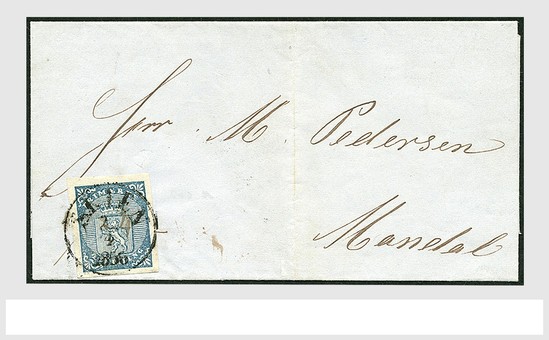 Herr. M. Pedersen
Mandal
1855